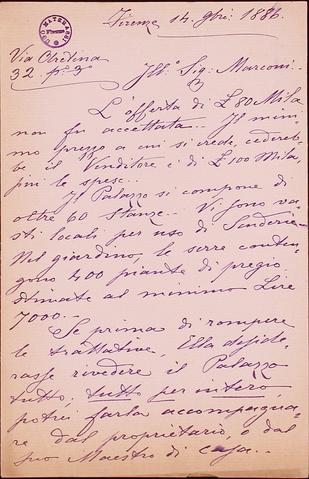 Firenze 14. 9bri: 1886.
Via Aretina
32. pº 3º
Ill.º Sig: Marconi..
L'offerta di £ 80 Mila
non fu accettata.. Il mini-
mo prezzo a cui si crede, cedereb-
be il Venditore è di £ 100 Mila,
più le spese..
Il Palazzo si compone di
oltre 60 Stanze.. Vi sono va-
sti locali per uso di Scuderie
Nel giardino, le serre conten-
gono 400 piante di pregio
stimate al minimo Lire
7000.-
Se prima di rompere
le trattative, Ella deside-
rasse rivedere il Palazzo
tutto, tutto per intero,
potrei farla accompagna-
re dal proprietario, o dal
suo Maestro di casa..